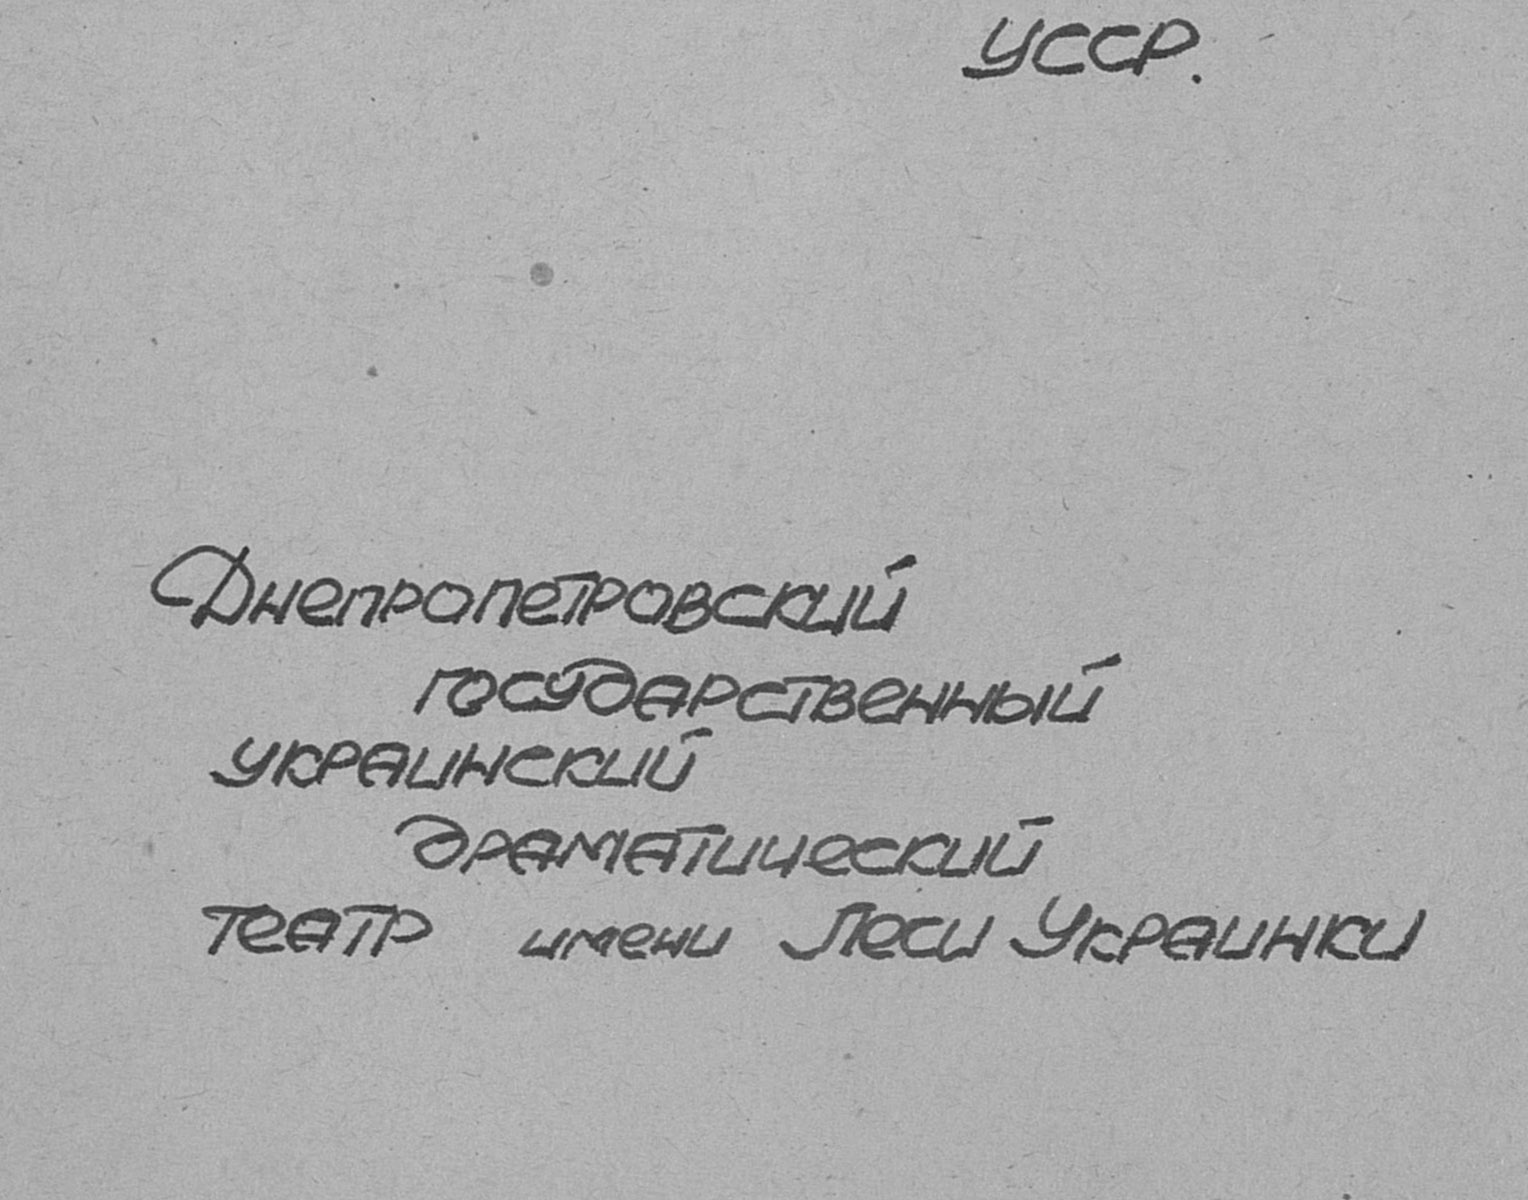 УССР.
Днепропетровский
государственный
украинский
драматический
театр имени Леси Украинки